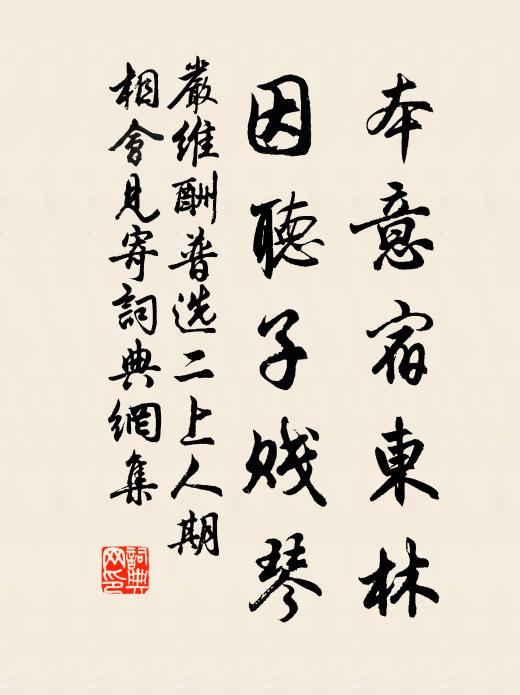 本意宿東林
因聽子賤琴
嚴維酬普选二上人期
相會見寄詞典網集
詞典网印